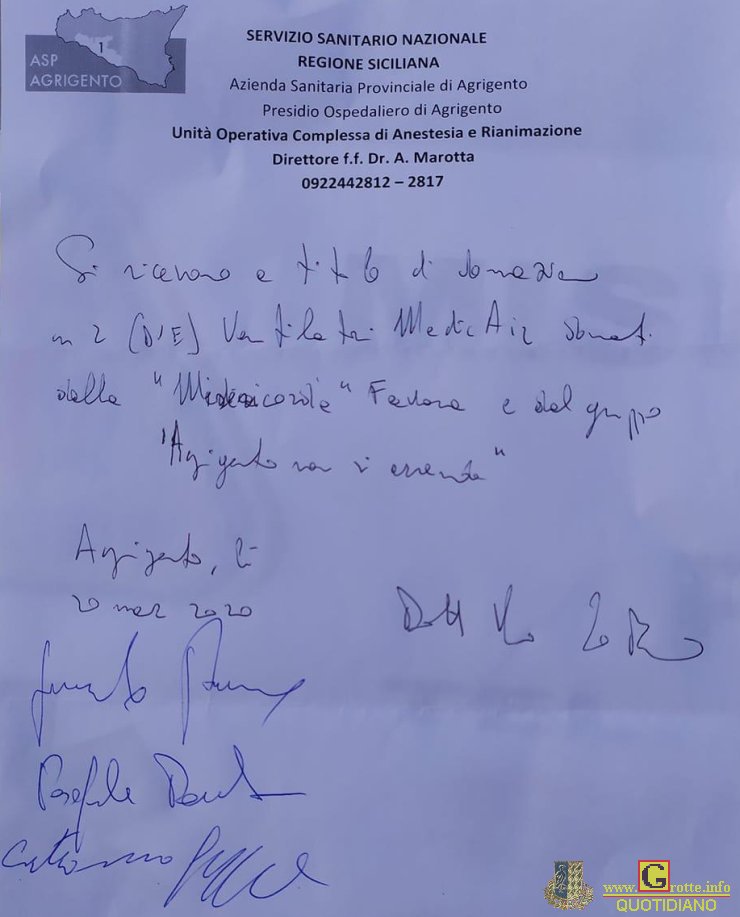 1
ASP
AGRIGENTO
SERVIZIO SANITARIO NAZIONALE
REGIONE SICILIANA
Azienda Sanitaria Provinciale di Agrigento
Presidio Ospedaliero di Agrigento
Unità Operativa Complessa di Anestesia e Rianimazione
Direttore f.f. Dr. A. Marotta
0922442812 – 2817
Si ricevono a titolo di donazione
n 2 (DUE) Ventilatori MedicAir donati
dalla "Misericordia" Favara e dal gruppo
"Agrigento non si arrende"
Agrigento, lì
20 mar 2020
Dott
www.Grotte.info
QUOTIDIANO